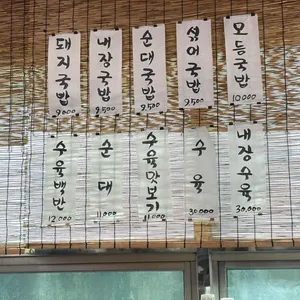 돼지국밥
9000
내장국밥
9,500
순대국밥
9,500
섞어국밥
9500
모듬국밥
10000
수육백반
12,000
순대
11,000
수육맛보기
11000
수육
30,000
내장수육
30,000